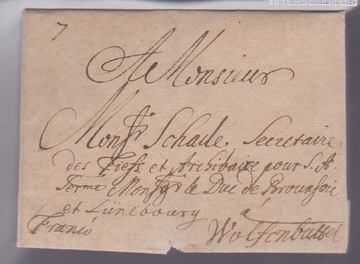 7
A Monsieur
Monsr Schade, Secretaire
des Fiefs et Archivaire pour S. A.
Serme Monsgr le Duc de Brounsvic
et Lünebourg
à
Franco Wolfenbuttel